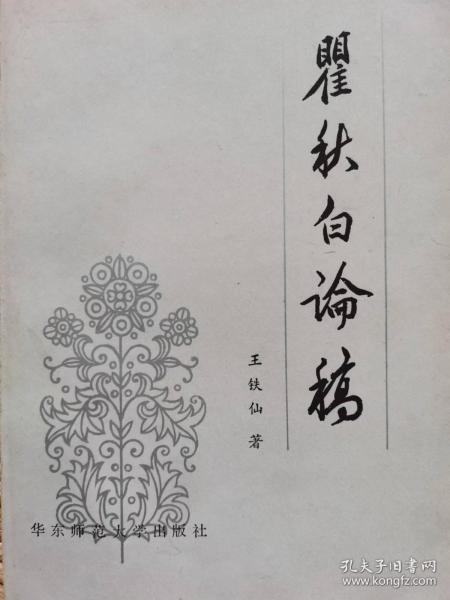 瞿秋白論稿
王铁仙 著
华东师范大学出版社
孔夫子旧书网
www.kongfz.com